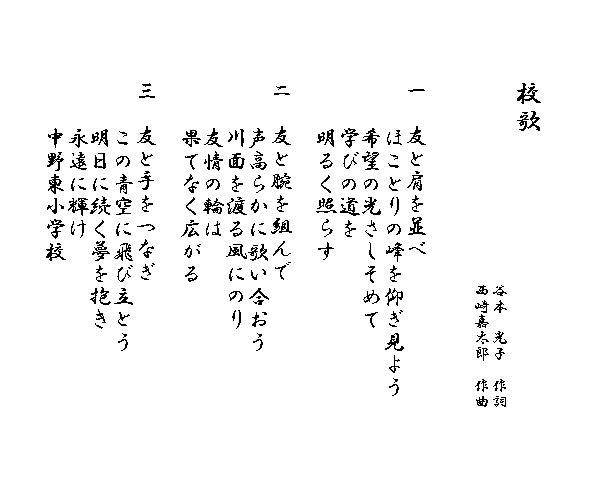 校歌
谷本 光子 作詞
西崎嘉太郎 作曲
一 友と肩を並べ
ほことりの峰を仰ぎ見よう
希望の光さしそめて
学びの道を
明るく照らす
二 友と腕を組んで
声高らかに歌い合おう
川面を渡る風にのり
友情の輪は
果てなく広がる
三 友と手をつなぎ
この青空に飛び立とう
明日に続く夢を抱き
永遠に輝け
中野東小学校